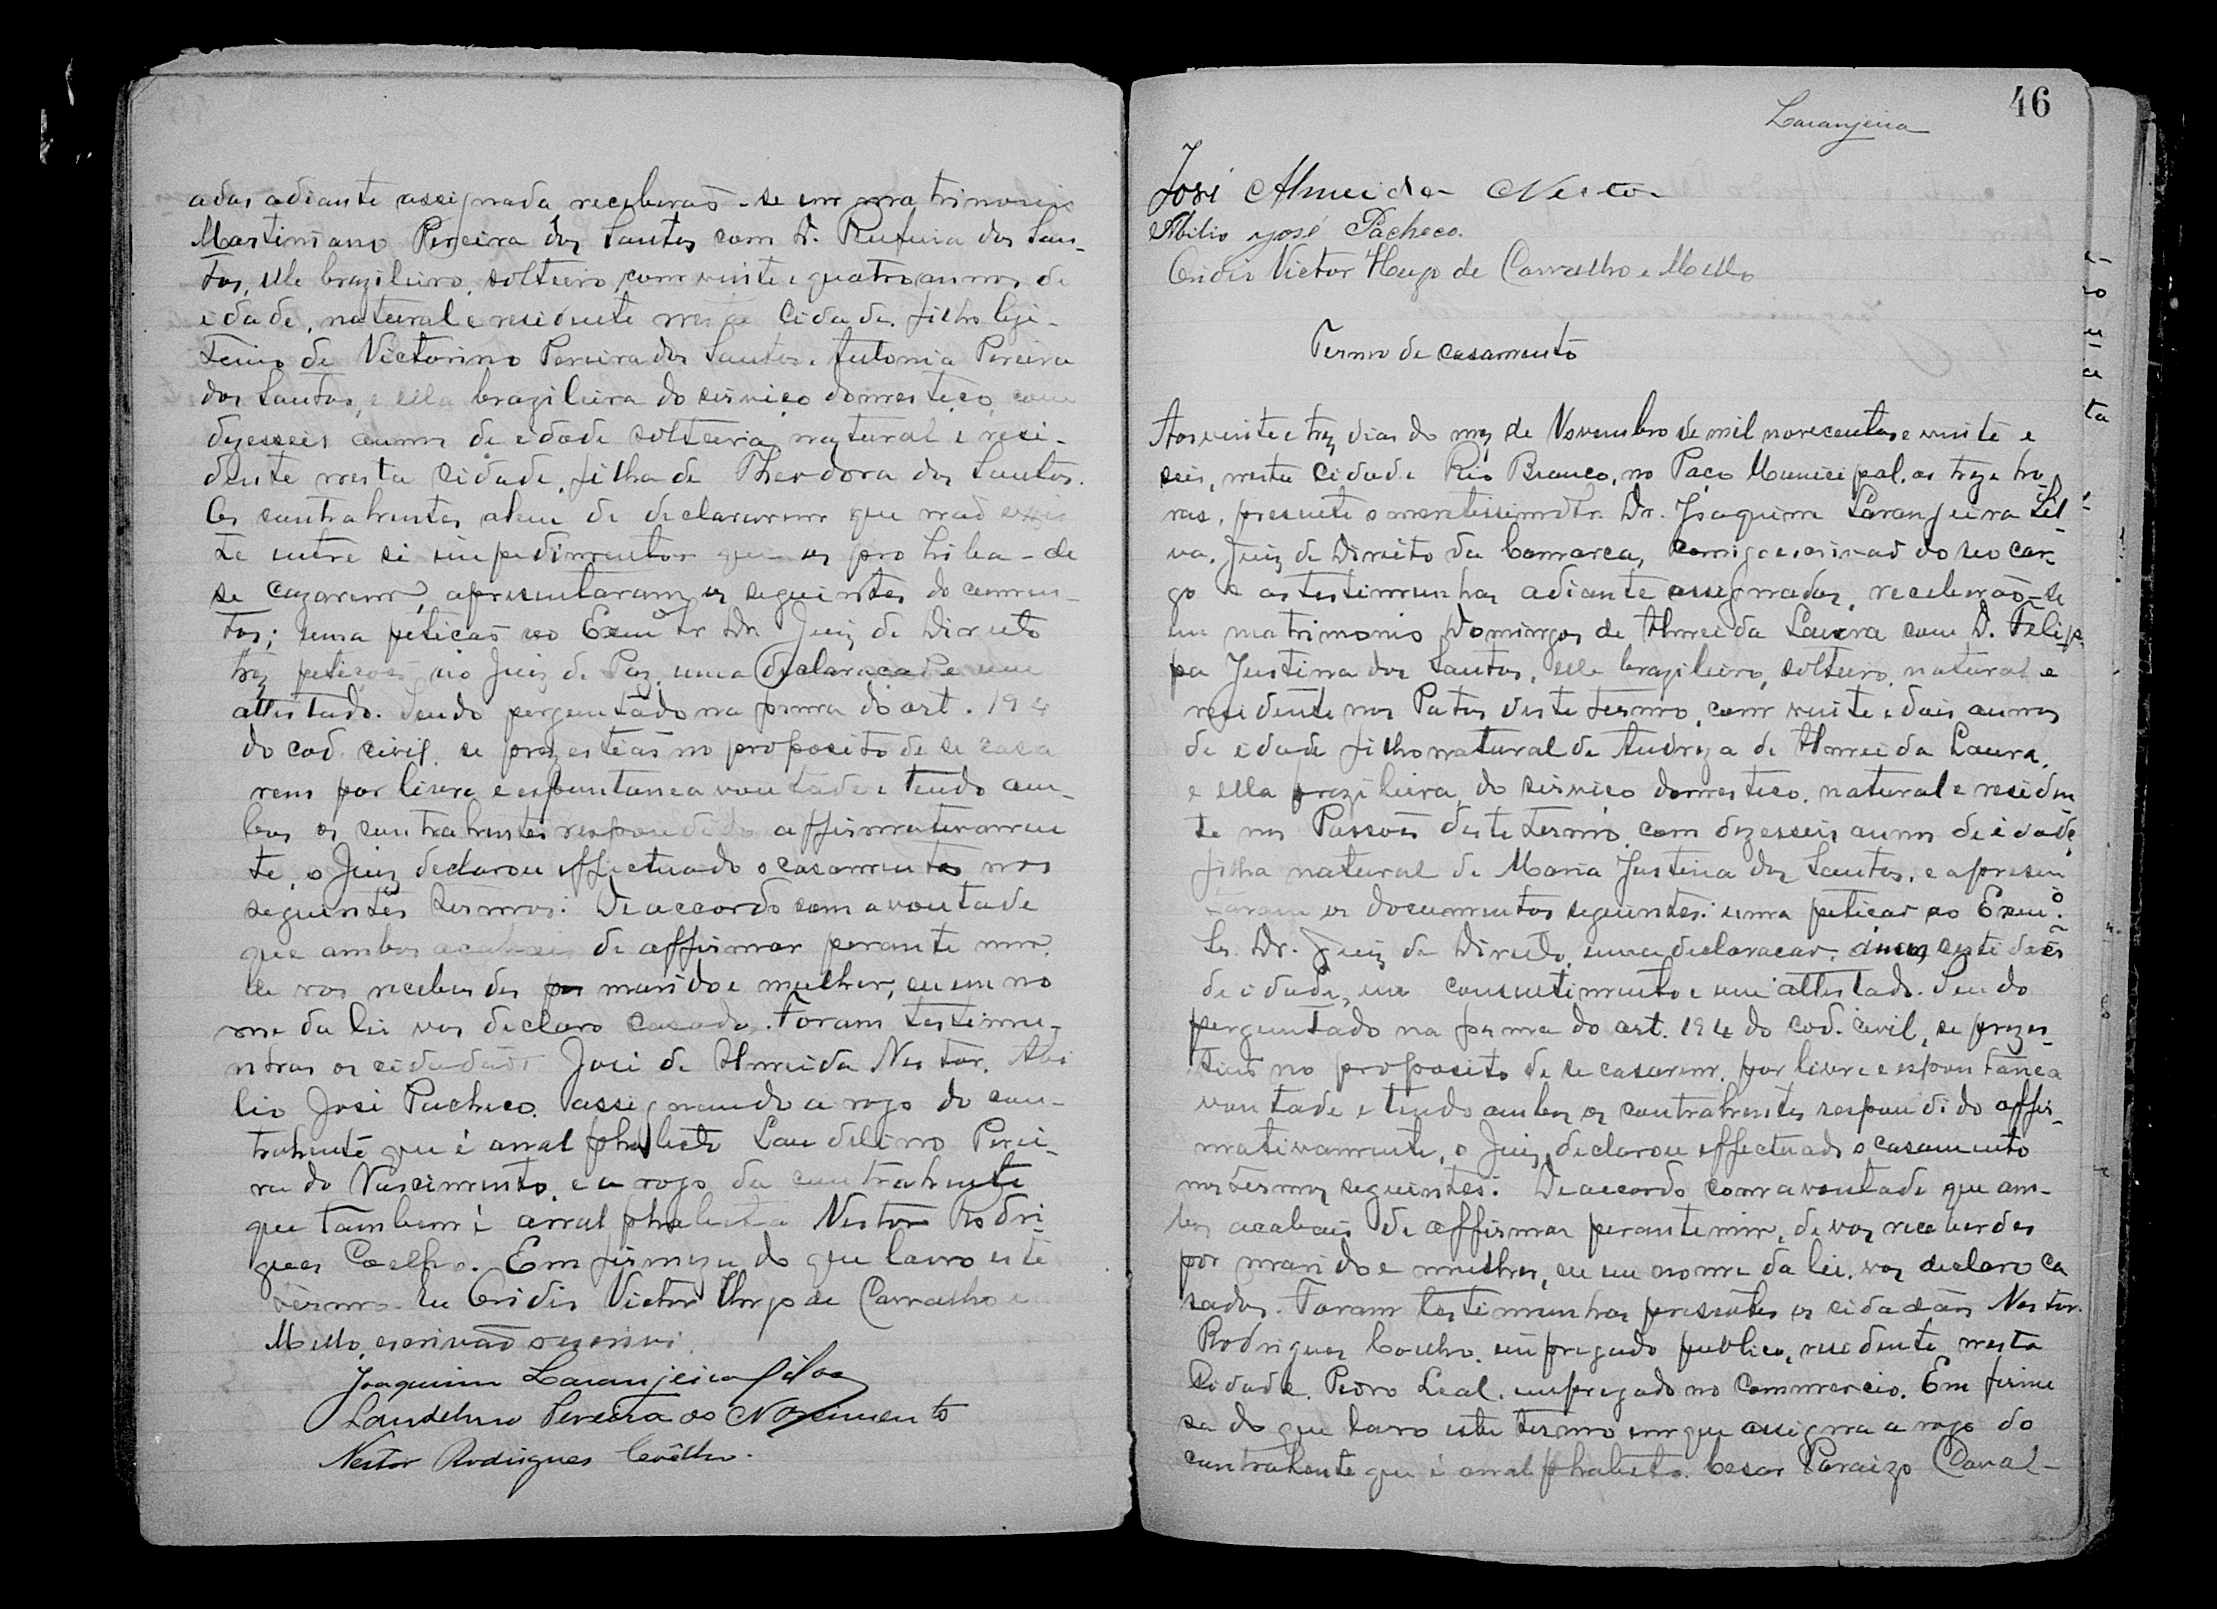 adas adiante assignada receberaõ-se em matrimonio
Martiniano Pereira dos Santos com D. Rufina dos San-
tos, elle brazileiro, solteiro, com vinte e quatro annos de
edade, natural e residente nesta Cidade, filho legi-
timo de Victorino Pereira dos Santos e Antonia Pereira
dos Santos, e ella brazileira do serviço domestico, com
dezesseis annos de edade solteira, natural e resi-
dente nesta Cidade, filha de Theodora dos Santos.
Os contrahentes alem de declararem que naõ exis
te entre si impedimentos que os prohiba-de
se cazarem, apresentaram os seguintes documen-
tos; uma petiçaõ ao Exmº Sr Dr Juiz de Direito
trez petições ao Juiz de Paz, uma declaração e um
attestado. Sendo perguntado na forma do art. 194
do cod. civil, se prezestiaõ no proposito de se casa
rem por livre e espontanea vontade e tendo am-
bos os contrahentes respondido affirmativamen
te, o Juiz declarou effectuado o casamento nos
seguintes termos: De accordo com a vontade
que ambos acabais de affirmar perante mim,
de vos receberdes por marido e mulher, eu em no
me da lei vos declaro casados. Foram testimu-
nhas os cidadãos José de Almeida Nestor, Abi
lio José Pacheco, assignando a rogo do con-
trahente que é analphabeto Laudelino Perei-
ra do Nascimento, e a rogo da contrahente
que tambem é analphabeta Nestor Rodri-
gues Coelho. Em firmeza do que lavro este
termo. Eu Victor Hugo de Carvalho e
Mello, escrivaõ o escrivi.
Joaquim Laranjeira Silva
Laudelino Pereira do Nascimento
Nestor Rodrigues Coêlho.
46
Laranjeira
José Almeida Nestor
Abilio José Pacheco.
Victor Hugo de Carvalho e Mello
Termo de casamento
Aos vinte e trez dias do mez de Novembro de mil novecentos e vinte e
seis, nesta cidade Rio Branco, no Paço Municipal, as treze ho-
ras, presente o meretissimo Sr. Dr. Joaquim Laranjeira Sil-
va, Juiz de Direito da Comarca, comigo escrivaõ do seo car-
go e as testimunhas adiante assignadas, receberaõ-se
em matrimonio Domingos de Almeida Laura com D. Felip
pa Justina dos Santos, elle brazileiro, solteiro, natural e
residente nos Patos deste termo, com vinte e dois annos
de edade filho natural de Andreza de Almeida Laura,
e ella brazileira, do serviço domestico, natural e residen
te nos deste termo, com dezesseis annos de idade,
filha natural de Maria Justina dos Santos, e apresen
taram os documentos seguintes: uma petiçaõ ao Exmº.
Sr. Dr. Juiz de Direito, uma declaracaõ, duas certidões
de idade, um consentimento e um attestado. Sendo
perguntado na forma do art. 194 do cod. civil, se prezes-
tiaõ no proposito de se casarem, por livre e espontanea
vontade e tendo ambos os contrahentes respondido affir-
mativamente, o Juiz declarou effectuado o casamento
nos termos seguintes: De accordo com a vontade que am-
bos acabais de affirmar perante mim, de vos receberdes
por marido e mulher, eu em nome da lei, vos declaro ca
sados. Foram testimunhas presentes os cidadãos Nestor
Rodrigues Coelho, empregado publico, residente nesta
Cidade, Pedro Leal, empregado no commercio. Em firme
sa do que lavro este termo em que assigna a rogo do
contrahente que é analphabeto. Cesar Paraizo Caval-